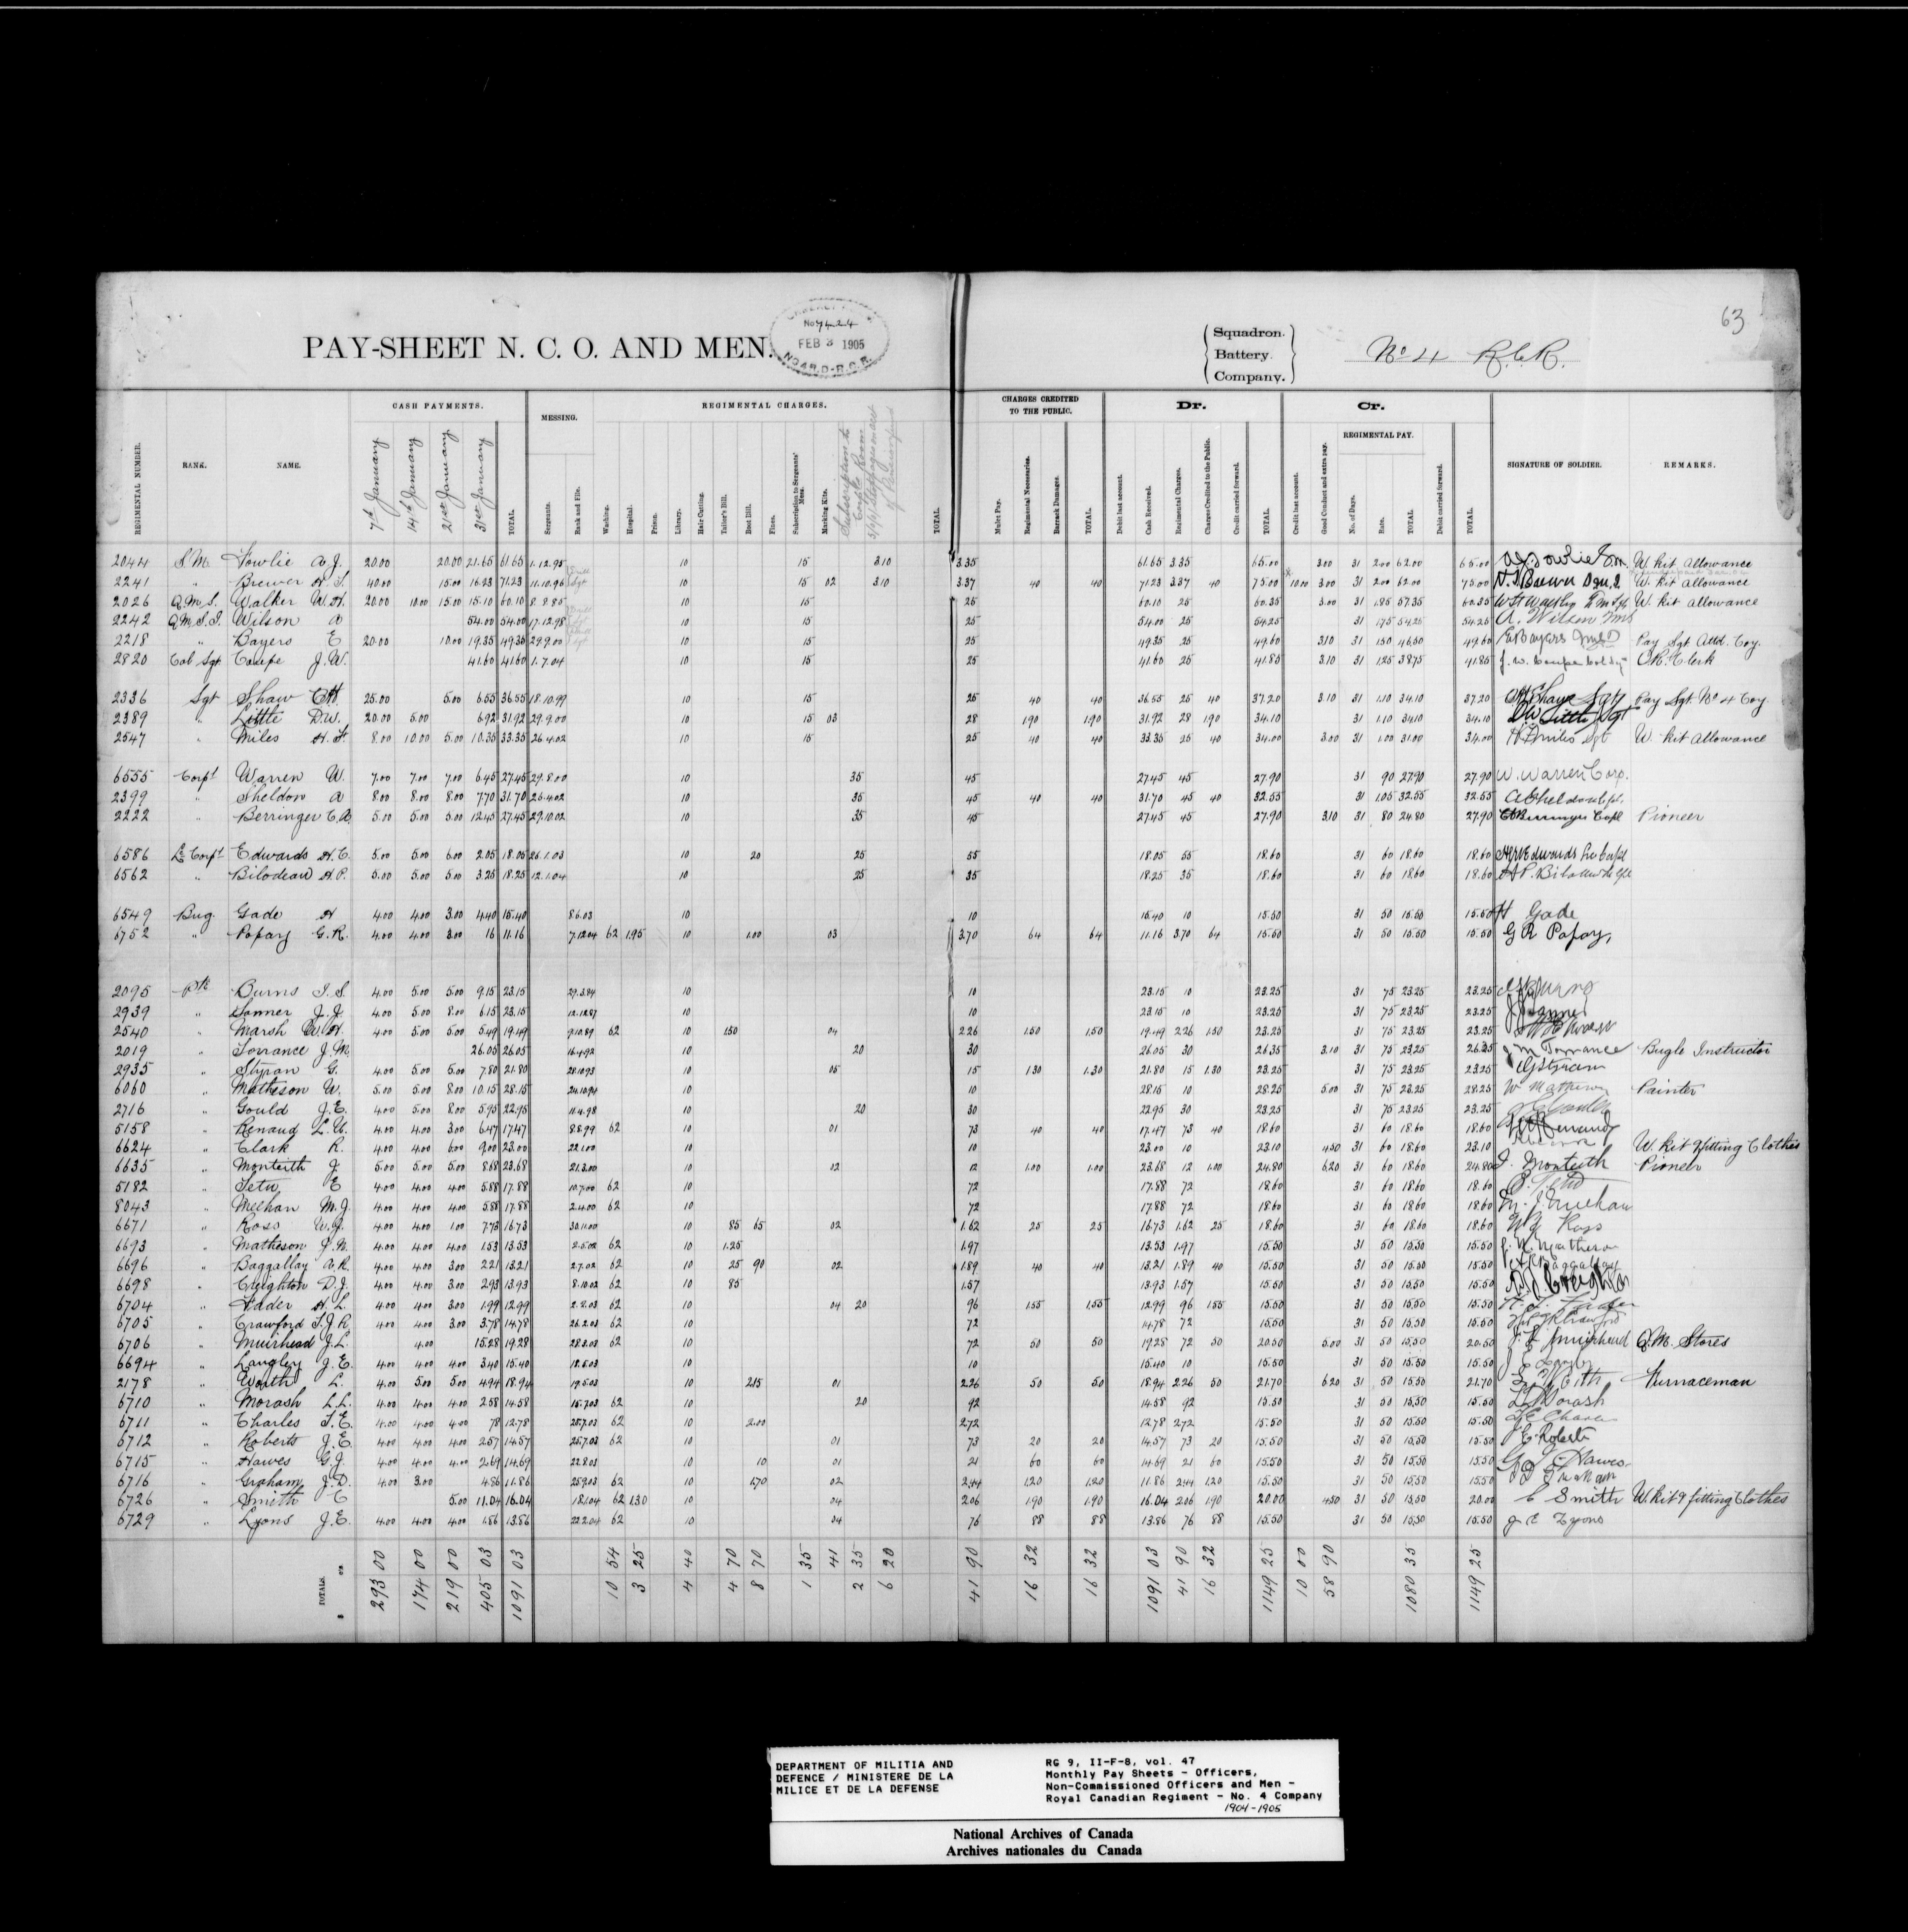 63
PAY-SHEET N. C. O. AND MEN.
No 7424
FEB 3 1905
NO 4 R.D-R.C.R.
Squadron.
Battery.
Company.
No 4 R.C.R.
CASH PAYMENTS. MESSING. REGIMENTAL CHARGES. CHARGES CREDITED TO THE PUBLIC. Dr. Cr.
REGIMENTAL PAY.
REGIMENTAL NUMBER. RANK. NAME. 7th January 14th January 21st January 31st January TOTAL. Sergeants. Rank and File. Washing. Hospital. Prison. Library. Hair Cutting. Tailor's Bill. Boot Bill. Fines. Subscription to Sergeants' Mess. Marking Kits. Subscription to Corpls Room TOTAL. Mulct Pay. Regimental Necessaries. Barrack Damages. TOTAL. Debit last account. Cash Received. Regimental Charges. Charges Credited to the Public. Credit carried forward. TOTAL. Credit last account. Good Conduct and extra pay. No. of Days. Rate. TOTAL Debit carried forward. TOTAL. SIGNATURE OF SOLDIER. REMARKS.
2044 S.M. Fowlie A J. 20.00 20.00 21.65 61.65 1.12.95 10 15 3.10 3.35 61.65 3.35 65.00 3.00 31 2.00 62.00 65.00 W. kit Allowance
2241 " Brewer N. S. 40.00 15.00 16.23 71.23 11.10.96 10 15 02 3.10 3.37 40 40 71.23 3.37 40 75.00 10.00 3.00 31 2.00 62.00 75.00 W. kit allowance
2026 Q.M.S. Walker W.H. 20.00 10.00 15.00 15.10 60.10 8.8.85 10 15 25 60.10 25 60.35 3.00 31 1.85 57.35 60.35 W. kit allowance
2242 Q.M.S.I. Wilson A 54.00 54.00 17.12.98 10 15 25 54.00 25 54.25 31 1.75 54.25 54.25 A. Wilson
2218 " Bayers E 20.00 10.00 19.35 49.35 29.9.00 10 15 25 49.35 25 49.60 3.10 31 1.50 46.50 49.60 E Bayers Pay Sgt Attd. Coy.
2820 Col Sgt Coupe J.W. 41.60 41.60 1.7.04 10 15 25 41.60 25 41.85 3.10 31 1.25 38.75 41.85 J. W. Coupe Col Sgt O.R. Clerk
2336 Sgt Shaw C H. 25.00 5.00 6.55 36.55 18.10.99 10 15 25 40 40 36.55 25 40 37.20 3.10 31 1.10 34.10 37.20 C H Shaw Sgt Pay Sgt. No 4 Coy
2389 " Little D.W. 20.00 5.00 6.92 31.92 29.9.00 10 15 03 28 1.90 1.90 31.92 28 1.90 34.10 31 1.10 34.10 34.10 D.W. Little Sgt
2547 " Miles H.F. 8.00 10.00 5.00 10.35 33.35 26.4.02 10 15 25 40 40 33.35 25 40 34.00 3.00 31 1.00 31.00 34.00 H.F. Miles Sgt W. kit Allowance
6555 Corpl Warren W. 7.00 7.00 7.00 6.45 27.45 29.8.00 10 35 45 27.45 45 27.90 31 90 27.90 27.90 W. Warren Corp.
2399 " Sheldon A 8.00 8.00 8.00 7.70 31.70 26.4.02 10 35 45 40 40 31.70 45 40 32.55 31 1.05 32.55 32.55 A Sheldon Cpl.
2222 " Berringer C.A. 5.00 5.00 5.00 12.45 27.45 29.10.02 10 35 45 27.45 45 27.90 3.10 31 80 24.80 27.90 Pioneer
6586 L Corpl Edwards H.C. 5.00 5.00 6.00 2.05 18.05 26.1.03 10 20 25 55 18.05 55 18.60 31 60 18.60 18.60
6562 " Bilodeau H.P. 5.00 5.00 5.00 3.25 18.25 12.1.04 10 25 35 18.25 35 18.60 31 60 18.60 18.60
6549 Bug. Gade H 4.00 4.00 3.00 4.40 15.40 8.6.03 10 10 15.40 10 15.50 31 50 15.50 15.50 H Gade
6752 " Popay G.R. 4.00 4.00 3.00 16 11.16 7.12.04 62 1.95 10 1.00 03 3.70 64 64 11.16 3.70 64 15.50 31 50 15.50 15.50 G R Popay,
2095 Pte Burns I.S. 4.00 5.00 5.00 9.15 23.15 29.3.84 10 10 23.15 10 23.25 31 75 23.25 23.25
2939 " Sonner J.J. 4.00 5.00 8.00 6.15 23.15 12.12.87 10 10 23.15 10 23.25 31 75 23.25 23.25
2540 " Marsh W.H. 4.00 5.00 5.00 5.49 19.49 9.10.89 62 10 1.50 04 2.26 1.50 1.50 19.49 2.26 1.50 23.25 31 75 23.25 23.25
2019 " Torrance J.M. 26.05 26.05 16.4.92 10 20 30 26.05 30 26.35 3.10 31 75 23.25 26.35 J M Torrance Bugle Instructor
2935 " Styran G. 4.00 5.00 5.00 7.80 21.80 28.10.93 10 05 15 1.30 1.30 21.80 15 1.30 23.25 31 75 23.25 23.25 G Styran
6060 " Matheson W. 5.00 5.00 8.00 10.15 28.15 24.10.94 10 10 28.15 10 28.25 5.00 31 75 23.25 28.25 W Matheson Painter
2716 " Gould J.E. 4.00 5.00 8.00 5.95 22.95 11.4.98 10 20 30 22.95 30 23.25 31 75 23.25 23.25
5158 " Renaud L.U. 4.00 4.00 3.00 6.47 17.47 8.8.99 62 10 01 73 40 40 17.47 73 40 18.60 31 60 18.60 18.60
6624 " Clark R. 4.00 4.00 6.00 9.00 23.00 22.1.00 10 10 23.00 10 23.10 4.50 31 60 18.60 23.10 W. kit & fitting Clothes
6635 " Monteith J. 5.00 5.00 5.00 8.68 23.68 21.3.00 10 12 12 1.00 1.00 23.68 12 1.00 24.80 6.20 31 60 18.60 24.80 J. Monteith Pioneer
5182 " Tetu E 4.00 4.00 4.00 5.88 17.88 10.7.00 62 10 72 17.88 72 18.60 31 60 18.60 18.60 E. Tetu
8043 " Meehan M.J. 4.00 4.00 4.00 5.88 17.88 2.4.00 62 10 72 17.88 72 18.60 31 60 18.60 18.60 M. J. Meehan
6671 " Ross W.J. 4.00 4.00 1.00 7.73 16.73 30.11.00 10 85 65 02 1.62 25 25 16.73 1.62 25 18.60 31 60 18.60 18.60 W J Ross
6693 " Matheson J.N. 4.00 4.00 4.00 1.53 13.53 2.5.02 62 10 1.25 1.97 13.53 1.97 15.50 31 50 15.50 15.50 J. N. Matheson
6696 " Baggallay A.R. 4.00 4.00 3.00 2.21 13.21 2.7.02 62 10 25 90 02 1.89 40 40 13.21 1.89 40 15.50 31 50 15.50 15.50 A R Baggallay
6698 " Creighton D.J. 4.00 4.00 3.00 2.93 13.93 8.10.02 62 10 85 1.57 13.93 1.57 15.50 31 50 15.50 15.50 D.J. Creighton
6704 " Fader H.L. 4.00 4.00 3.00 1.99 12.99 2.2.03 62 10 04 20 96 1.55 1.55 12.99 96 1.55 15.50 31 50 15.50 15.50 H. L. Fader
6705 " Crawford T.J.R. 4.00 4.00 3.00 3.78 14.78 26.2.03 62 10 72 14.78 72 15.50 31 50 15.50 15.50
6706 " Muirhead J.L. 4.00 15.28 19.28 28.3.03 62 10 72 50 50 19.28 72 50 20.50 5.00 31 50 15.50 20.50 J. L Muirhead Q.M. Stores
6694 " Langley J.E. 4.00 4.00 4.00 3.40 15.40 18.5.03 10 10 15.40 10 15.50 31 50 15.50 15.50 J E Langley
2178 " Worth L. 4.00 5.00 5.00 4.94 18.94 19.5.03 10 2.15 01 2.26 50 50 18.94 2.26 50 21.70 6.20 31 50 15.50 21.70 Furnaceman
6710 " Morash L.L. 4.00 4.00 4.00 2.58 14.58 15.7.03 62 10 20 92 14.58 92 15.50 31 50 15.50 15.50 L L Morash
6711 " Charles T.E. 4.00 4.00 4.00 78 12.78 25.7.03 62 10 2.00 2.72 12.78 2.72 15.50 31 50 15.50 15.50
6712 " Roberts J.E. 4.00 4.00 4.00 2.57 14.57 25.7.03 62 10 01 73 20 20 14.57 73 20 15.50 31 50 15.50 15.50 J E Roberts
6715 " Hawes G.J. 4.00 4.00 4.00 2.69 14.69 22.8.03 10 10 01 21 60 60 14.69 21 60 15.50 31 50 15.50 15.50 G J Hawes
6716 " Graham J.D. 4.00 3.00 4.86 11.86 25.9.03 62 10 1.70 02 2.44 1.20 1.20 11.86 2.44 1.20 15.50 31 50 15.50 15.50 J D Graham
6726 " Smith C 5.00 11.04 16.04 18.1.04 62 1.30 10 04 2.06 1.90 1.90 16.04 2.06 1.90 20.00 4.50 31 50 15.50 20.00 C Smith W. kit & fitting Clothes
6729 " Lyons J.E. 4.00 4.00 4.00 1.86 13.86 22.2.04 62 10 04 76 88 88 13.86 76 88 15.50 31 50 15.50 15.50 J E Lyons
TOTALS. $ cts 293 00 174 00 219 00 405 03 1091 03 10 54 3 25 4 40 4 70 8 70 1 35 41 2 35 6 20 41 90 16 32 16 32 1091 03 41 90 16 32 1149 25 10 00 58 90 1080 35 1149 25
DEPARTMENT OF MILITIA AND
DEFENCE / MINISTERE DE LA
MILICE ET DE LA DEFENSE
RG 9, II-F-8, vol. 47
Monthly Pay Sheets - Officers,
Non-Commissioned Officers and Men -
Royal Canadian Regiment - No. 4 Company
1904-1905
National Archives of Canada
Archives nationales du Canada